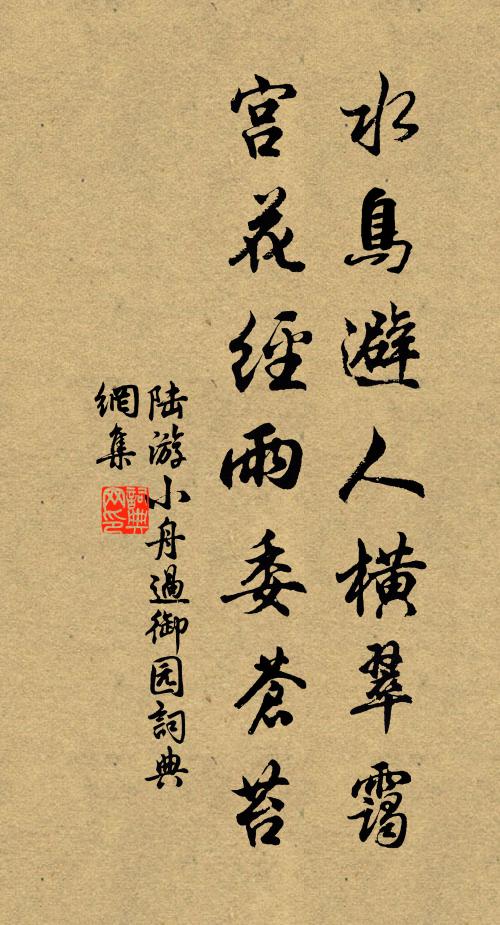 水鳥避人橫翠靄
宫花經雨委蒼苔
陆游小舟過御园詞典
網集
詞典
网印